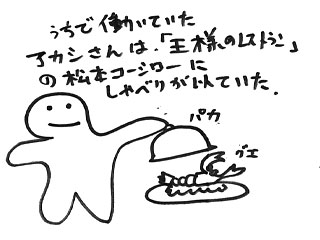 うちで働いていた
アカシさんは、「王様のレストラン」
の松本コージローに
しゃべりが似ていた.
パカ
グエ